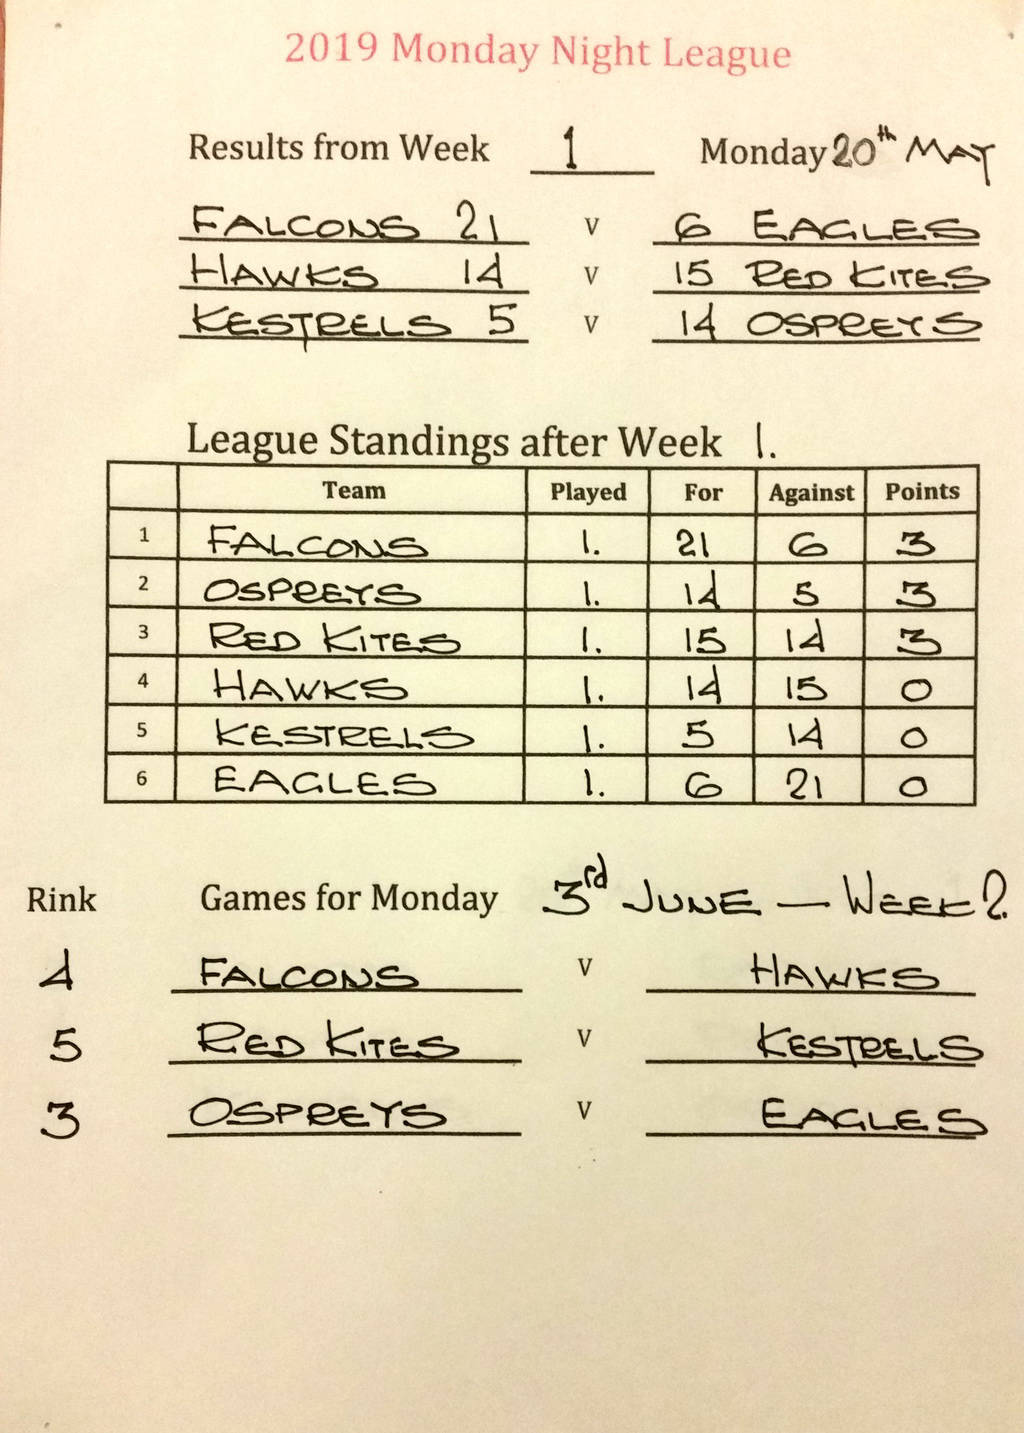 2019 Monday Night League
Results from Week 1 Monday 20th MAY
FALCONS 21 v 6 EAGLES
HAWKS 14 v 15 RED KITES
KESTRELS 5 v 14 OSPREYS
League Standings after Week 1.
Team Played For Against Points
1 FALCONS 1. 21 6 3
2 OSPREYS 1. 14 5 3
3 RED KITES 1. 15 14 3
4 HAWKS 1. 14 15 0
5 KESTRELS 1. 5 14 0
6 EAGLES 1. 6 21 0
Rink Games for Monday 3rd JUNE — WEEK 2.
4 FALCONS v HAWKS
5 RED KITES v KESTRELS
3 OSPREYS v EAGLES